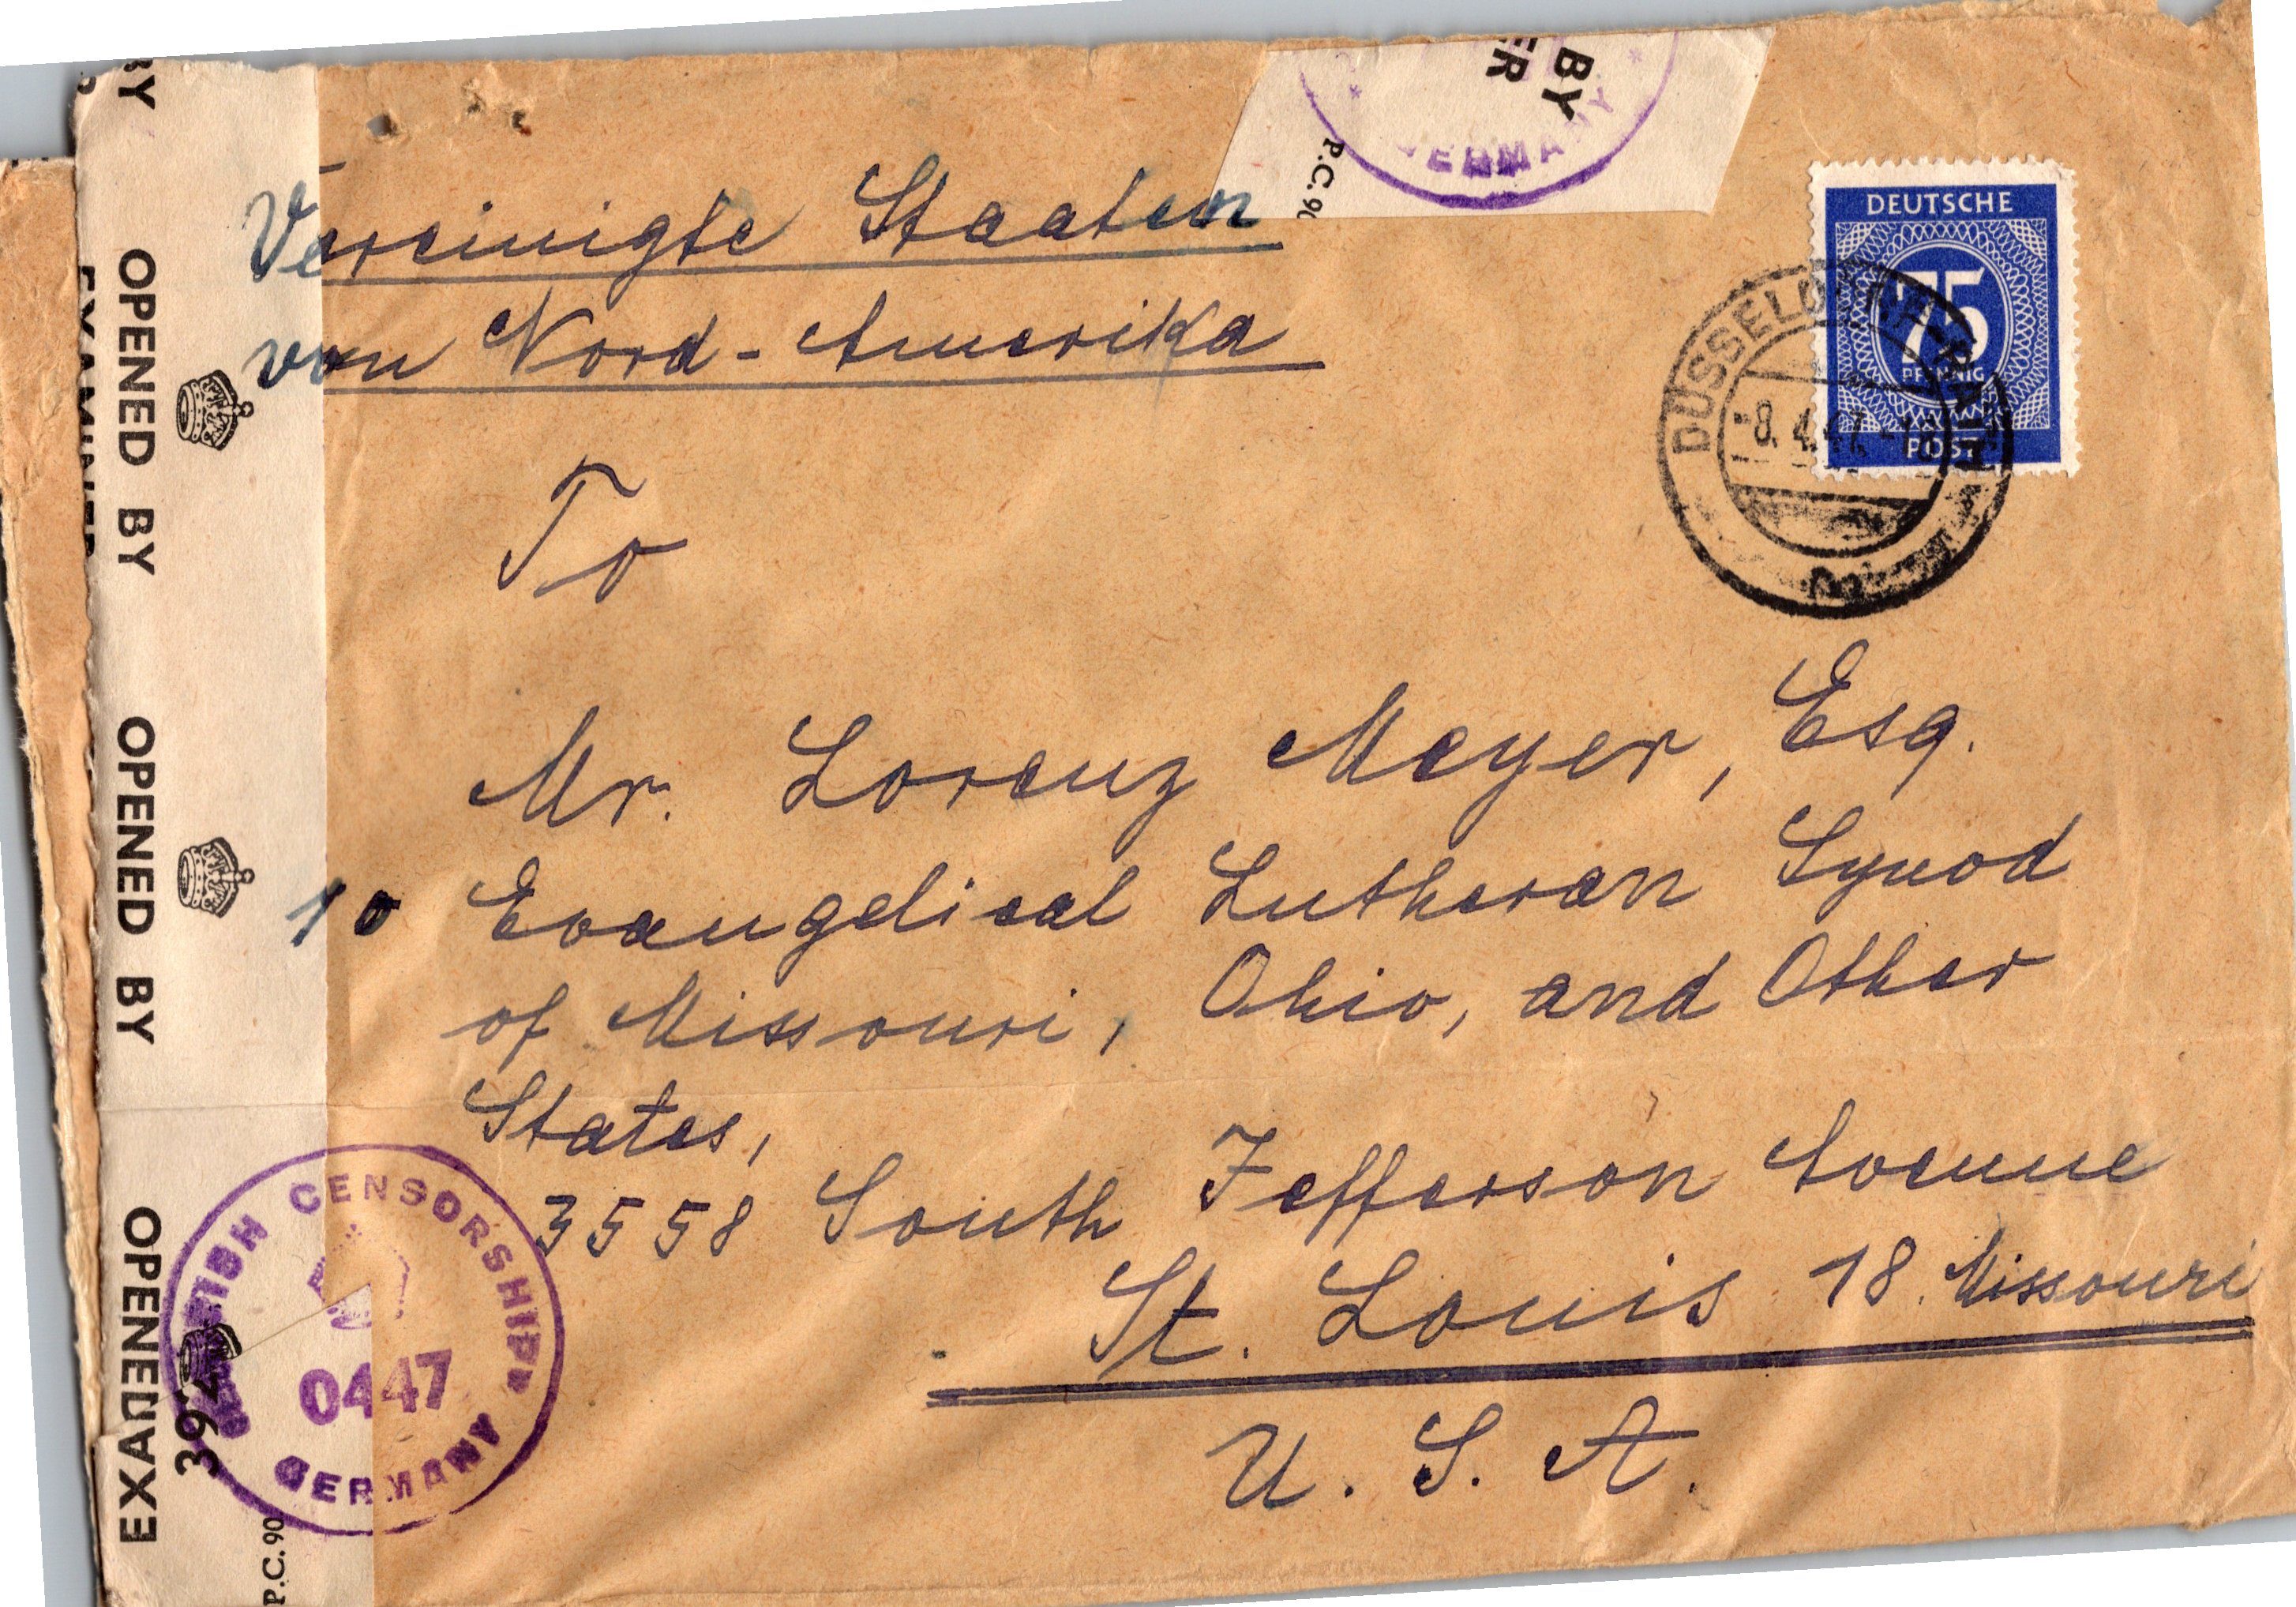 Vereinigte Staaten
von Nord-Amerika
BY
ER
GERMANY
P.C. 90
DEUTSCHE
75
PFENNIG
POST
DÜSSELDORF
-8.4.47
To
Mr. Lorenz Meyer, Esq.
Evangelical Lutheran Synod
of Missouri, Ohio, and Other
States,
3558 South Jefferson Avenue
St. Louis 18. Missouri
U. S. A.
BY OPENED BY OPENED BY OPENED
EXAMINER
EXA
392
P.C. 90
CENSORSHIP
0447
GERMANY